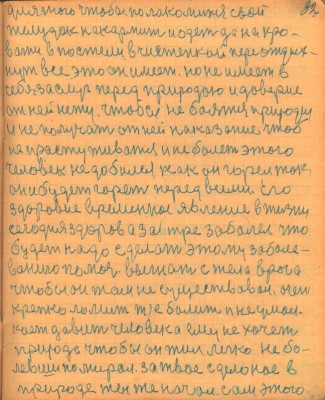 82
для этого чтобы полакомится свой
желудок накормит и одежда на кро-
вати в постели в чистенкой переотдох-
нут все это он имеет. но не имеет в
себе заслуг перед природою и доверие
от ней нету. чтобы не боятся природу
и не получат от ней наказание чтоб
на простуживатся и не болет этого
человек не добился как он горел так
он и будет горет перед всеми. Его
здоровие временное явление в жизни
сегодня здоров а завтре заболел что
будет надо сделат этому заболе-
ванию помоч. выгнат с тела врага
чтобы он там не существовал. очен
крепко ломит тже болит и не умол-
кает давит человека ему не хочет
природа чтобы он жил легко не бо-
левши помирал. за твое сделоное в
природе ты же начал сам этого